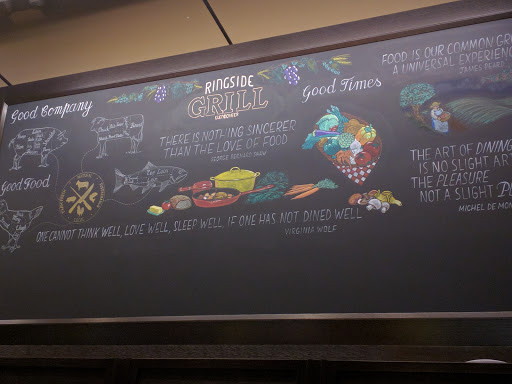 Good Company
RINGSIDE
GRILL
Good Times
THERE IS NOTHING SINCERER
THAN THE LOVE OF FOOD
GEORGE BERNARD SHAW
Good Food
ONE CANNOT THINK WELL, LOVE WELL, SLEEP WELL, IF ONE HAS NOT DINED WELL
VIRGINIA WOLF
FOOD IS OUR COMMON GR
A UNIVERSAL EXPERIENC
JAMES BEARD
THE ART OF DINING
IS NO SLIGHT ART
THE PLEASURE
NOT A SLIGHT
MICHEL DE MON